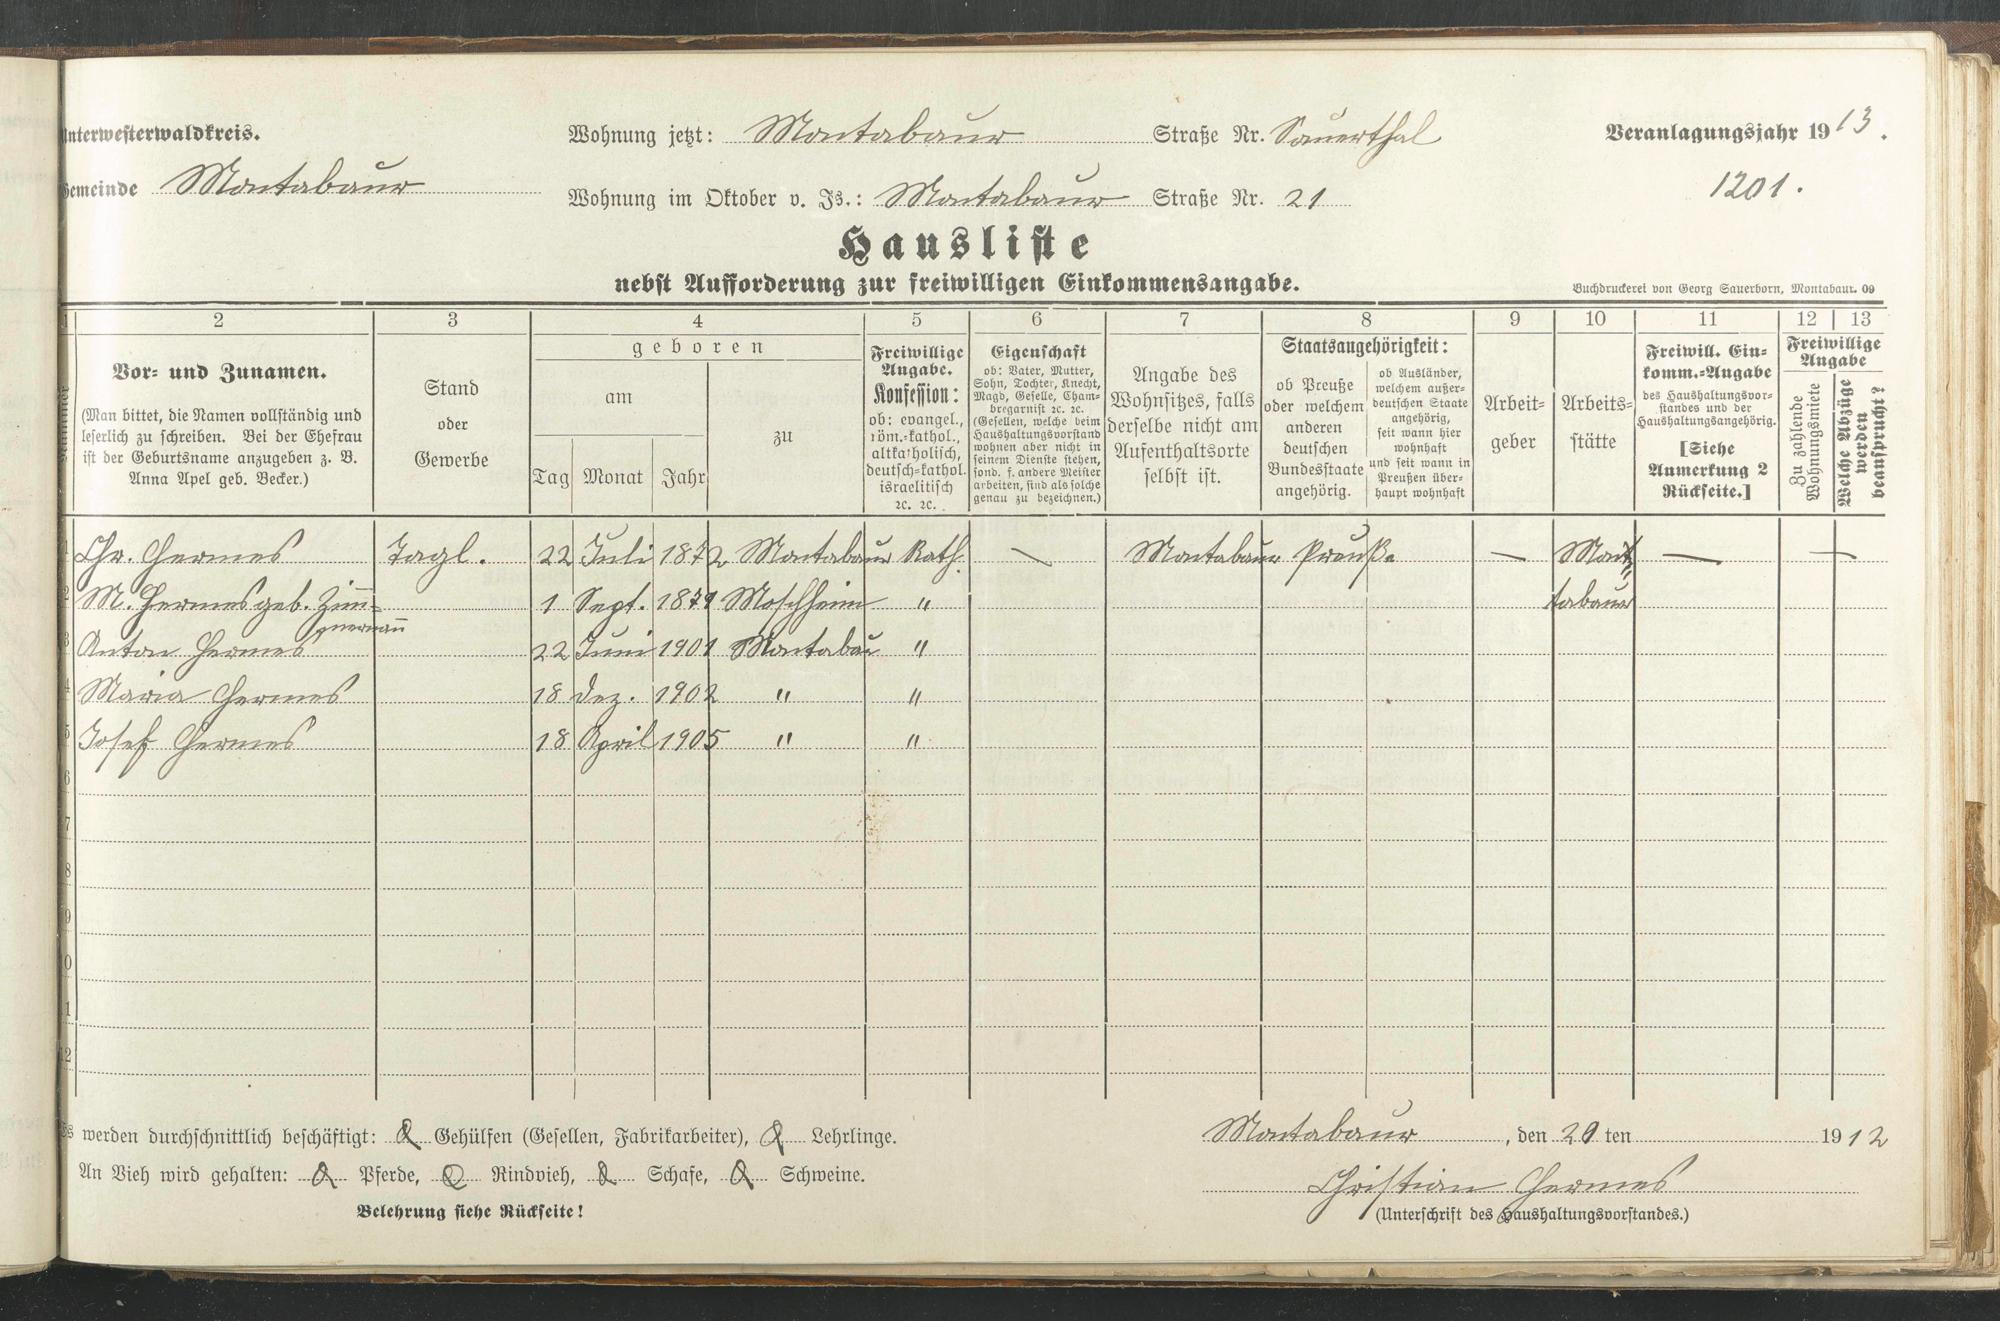 Unterwesterwaldkreis. Wohnung jetzt: Montabaur Straße Nr. Sauerthal Veranlagungsjahr 1913.
Gemeinde Montabaur Wohnung im Oktober v. Js.: Montabaur Straße Nr. 21 1201.
Hausliste
nebst Aufforderung zur freiwilligen Einkommensangabe.
Buchdruckerei von Georg Sauerborn, Montabaur. 09
1 2 3 4 5 6 7 8 9 10 11 12 13
Nummer
Vor- und Zunamen.
(Man bittet, die Namen vollständig und
leserlich zu schreiben. Bei der Ehefrau
ist der Geburtsname anzugeben z. B.
Anna Apel geb. Becker.)
Stand
oder
Gewerbe
geboren
am
Tag Monat Jahr
zu
Freiwillige
Angabe.
Konfession:
ob: evangel.,
röm.-kathol.,
altkatholisch,
deutsch-kathol.
israelitisch
ꝛc. ꝛc.
Eigenschaft
ob: Vater, Mutter,
Sohn, Tochter, Knecht,
Magd, Geselle, Cham-
bregarnist ꝛc. ꝛc.
(Gesellen, welche beim
Haushaltungsvorstand
wohnen aber nicht in
seinem Dienste stehen,
sond. f. andere Meister
arbeiten, sind als solche
genau zu bezeichnen.)
Angabe des
Wohnsitzes, falls
derselbe nicht am
Aufenthaltsorte
selbst ist.
Staatsangehörigkeit:
ob Preuße
oder welchem
anderen
deutschen
Bundesstaate
angehörig.
ob Ausländer,
welchem außer-
deutschen Staate
angehörig,
seit wann hier
wohnhaft
und seit wann in
Preußen über-
haupt wohnhaft
Arbeit-
geber
Arbeits-
stätte
Freiwill. Ein-
komm.-Angabe
des Haushaltungsvor-
standes und der
Haushaltungsangehörig.
[Siehe
Anmerkung 2
Rückseite.]
Freiwillige
Angabe
Zu zahlende
Wohnungsmiete
Welche Abzüge
werden
beansprucht?
1 Chr. Hermes Tagl. 22 Juli 1872 Montabaur Kath. — Montabaur Preuße — Mon — —
2 M. Hermes geb. Zim- 1 Sept. 1879 Moschheim " tabaur
mermann
3 Anton Hermes 22 Juni 1901 Montabau "
4 Maria Hermes 18 Dez. 1902 " "
5 Josef Hermes 18 April 1905 " "
6
7
8
9
10
11
12
Es werden durchschnittlich beschäftigt: 0 Gehülfen (Gesellen, Fabrikarbeiter), 0 Lehrlinge.
An Vieh wird gehalten: 0 Pferde, 0 Rindvieh, 0 Schafe, 0 Schweine.
Belehrung siehe Rückseite!
Montabaur, den 20 ten 1912
Christian Hermes
(Unterschrift des Haushaltungsvorstandes.)